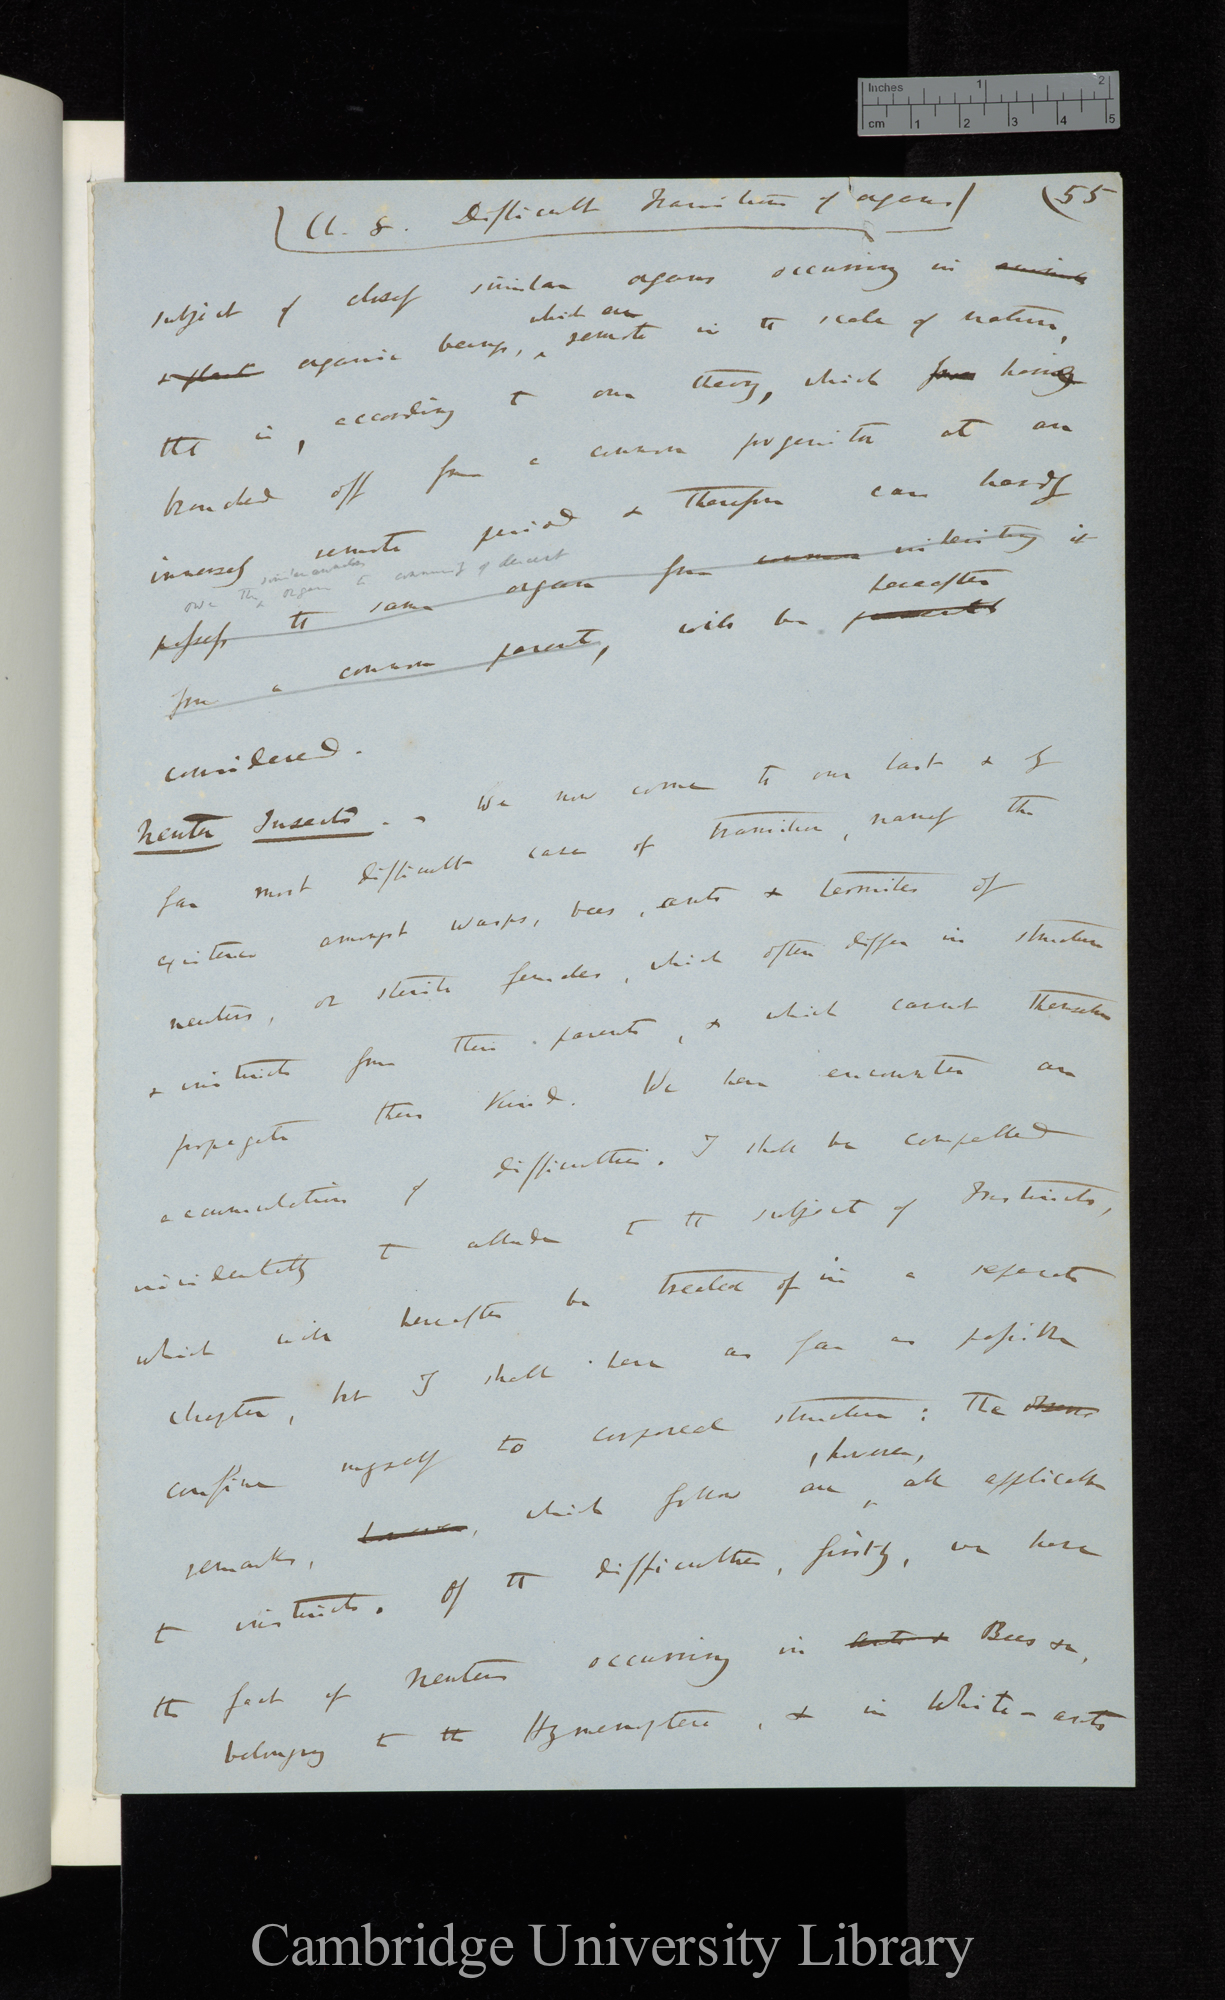 Inches 1 2
cm 1 2 3 4 5
(Ch. 8. Difficult Transitions of organs) (55
subject of closely similar organs occurring in animals
& plants organic beings, which are remote in the scale of nature,
that is, according to our theory, which have having
branched off from a common progenitor at an
immensely remote period & therefore can hardly
owe the similar organ to community of descent
possess the same organ from common inheriting it
from a common parent, will be presently hereafter
considered.
Neuter Insects. - We now come to our last & by
far most difficult case of transition, namely the
existence amongst wasps, bees, ants & termites of
neuters, or sterile females, which often differ in structure
& instincts from their parents, & which cannot themselves
propagate their kind. We here encounter an
accumulation of difficulties. I shall be compelled
incidentally to allude to the subject of Instincts,
which will hereafter be treated of in a separate
chapter, but I shall here as far as possible
confine myself to corporeal structure: The
remarks, however, which follow are, however, all applicable
to instincts. Of the difficulties, firstly, we have
the fact of neuters occurring in ants & Bees &c,
belonging to the Hymenoptera, & in White-ants
Cambridge University Library